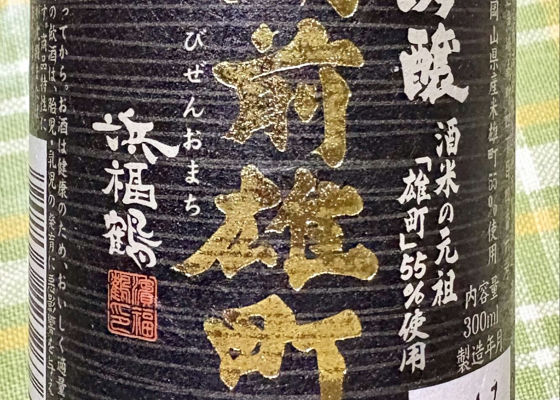 岡山県産米雄町55%使用
内容量
300ml
製造年月
吟醸
酒米の元祖
「雄町」55%使用
前雄町
びぜんおまち
浜福鶴
濱福
鶴印
ってから。お酒は健康のため、おいしく適量
の飲酒は、胎児・乳児の発育に悪影響を与え